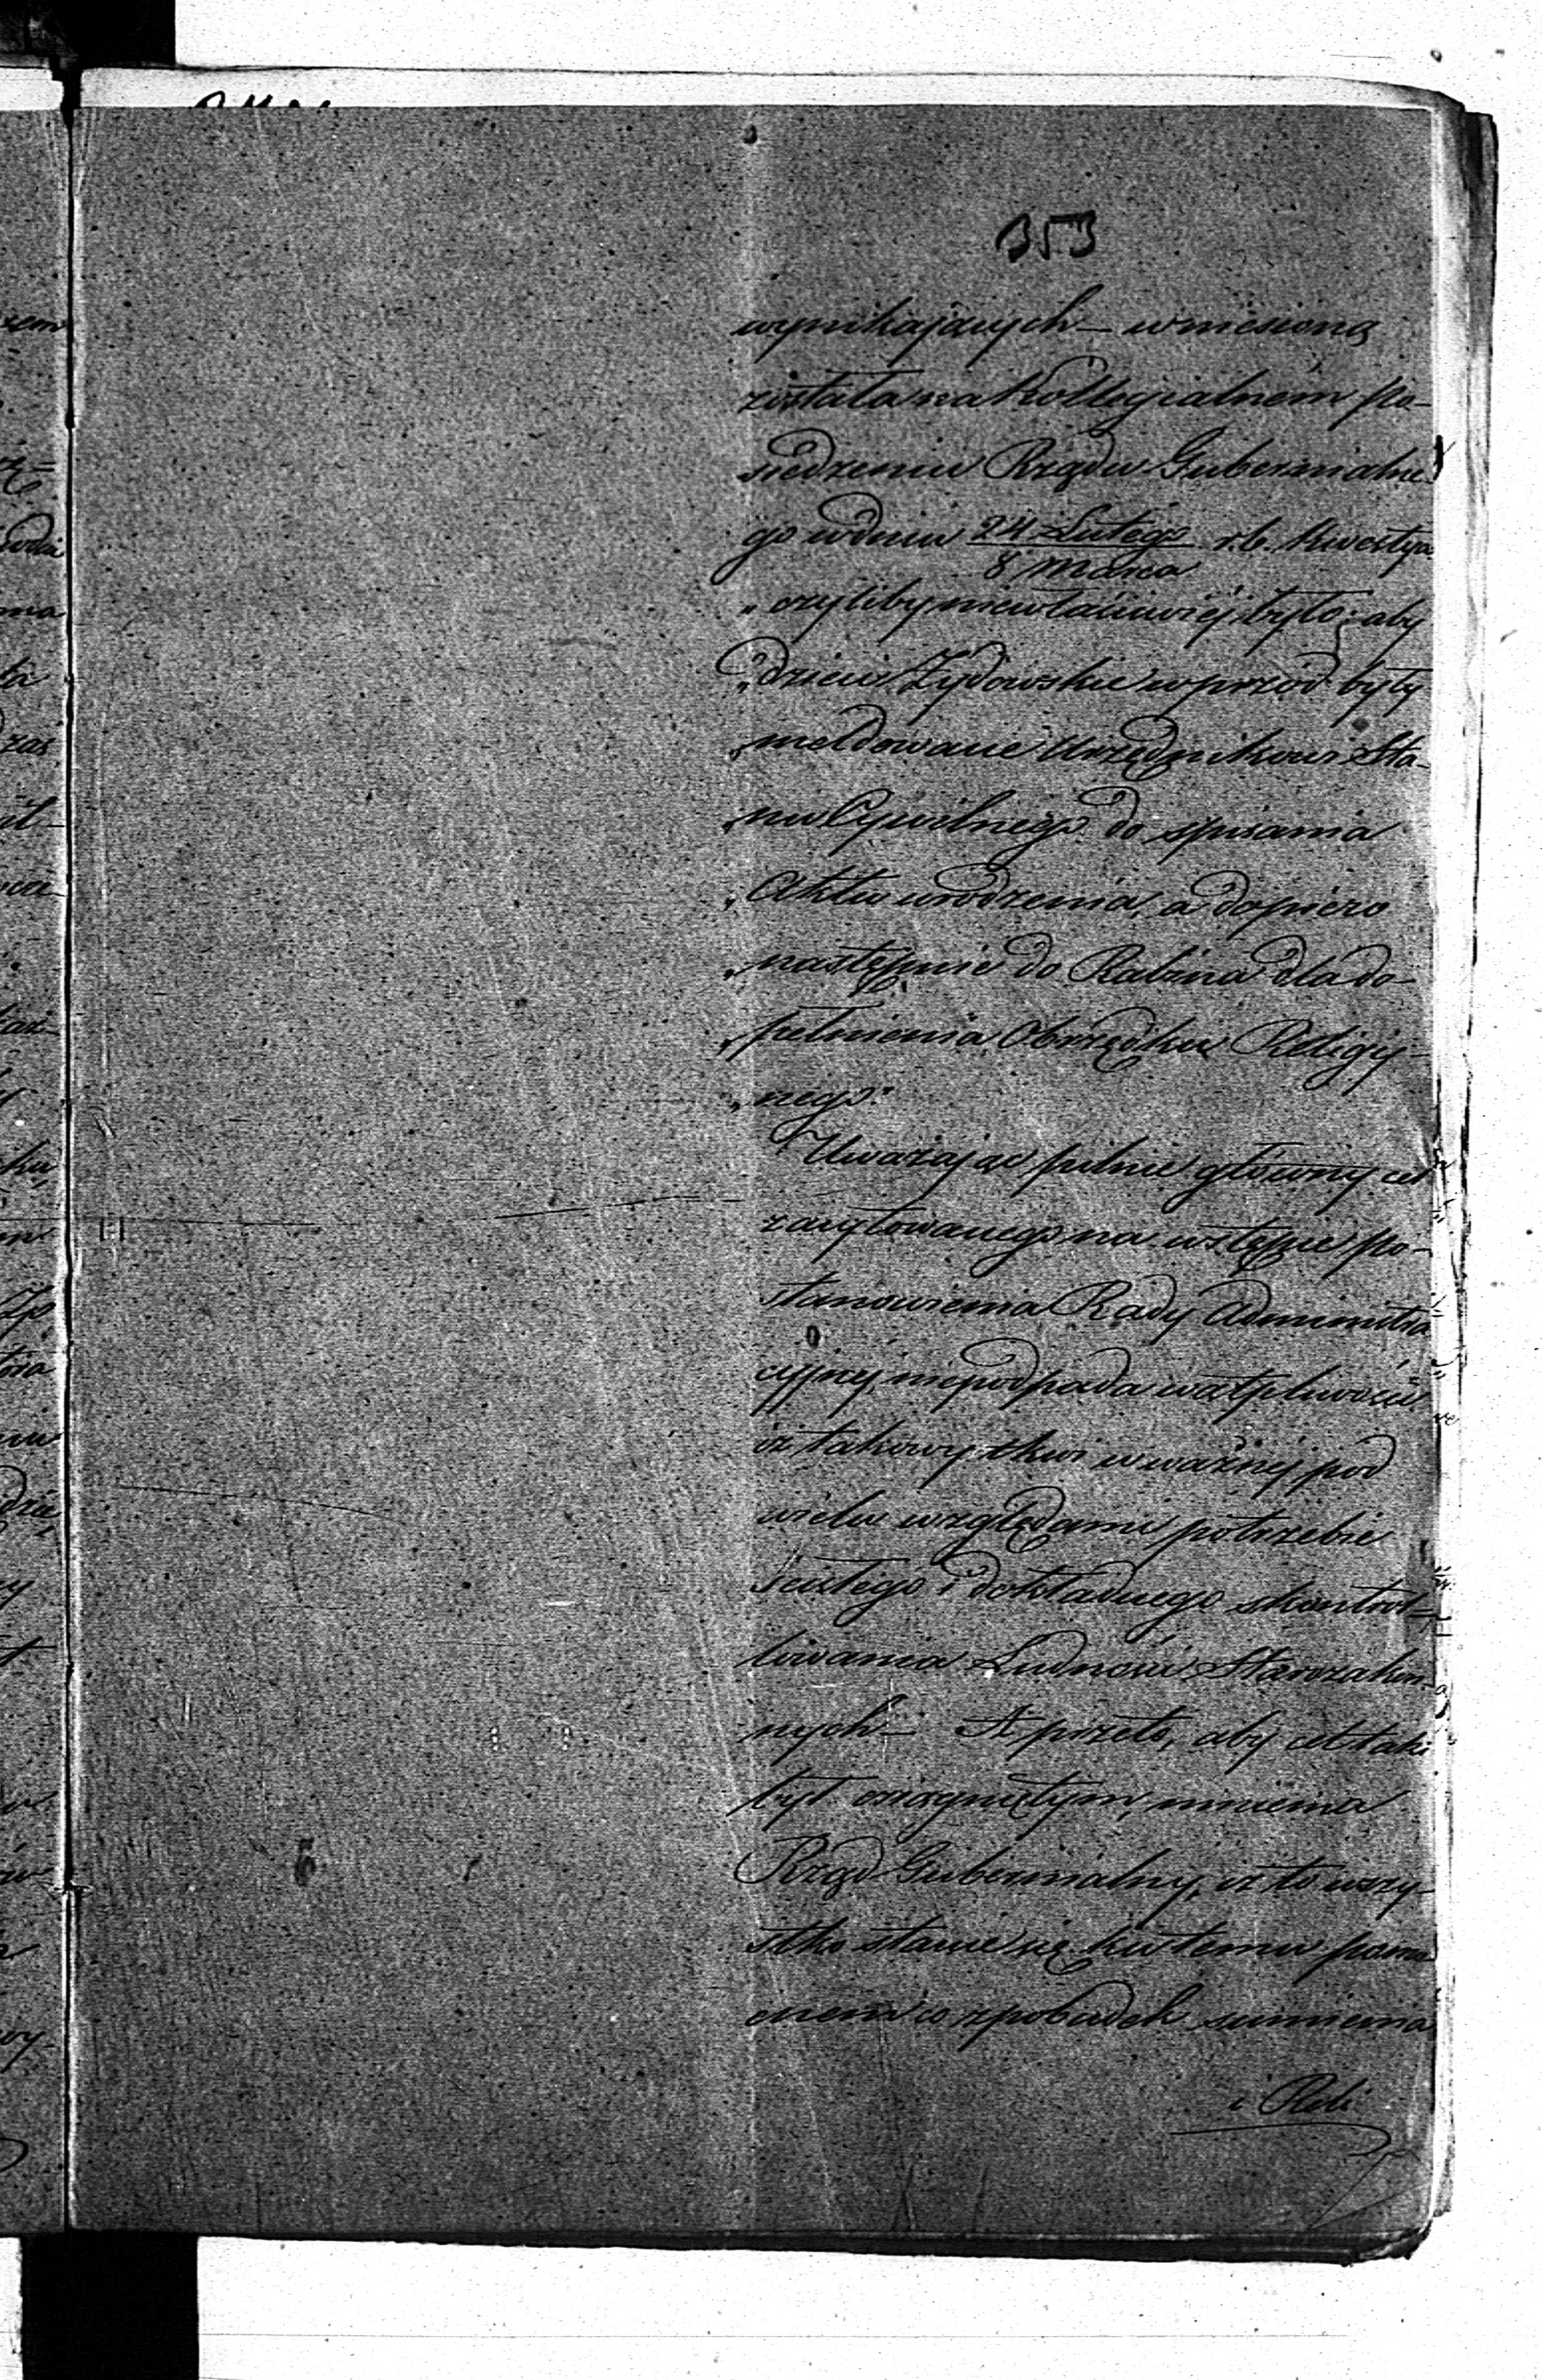 353
wynikających – wniesioną
została na Kollegialnem po-
siedzeniu Rządu Gubernialne-
go w dniu 24 Lutego / 8 Marca r. b. Kwestya
„czyliby niewłaściwiéj było; aby
„dzieci Żydowskie wprzód były
„meldowane Urzędnikowi Sta-
„nu Cywilnego do spisania
„Aktu urodzenia, a dopiero
„następnie do Rabina dla do-
„pełnienia Obrządku Religij-
„nego."
Uważając pilnie główny cel
zacytowanego na wstępie po-
stanowienia Rady Administra
cyjnéj, niepodpada wątpliwości
iż takowy tkwi w ważnéj pod
wielu względami potrzebie
ścisłego i dokładnego skontrol-
lowania Ludności Starozakon-
nych – A przeto, aby cel taki
był osiągniętym, mniema
Rząd Gubernialny, iż to wszy-
stko stanie się ku temu pomo
cnem co z pobudek sumienia
i Reli